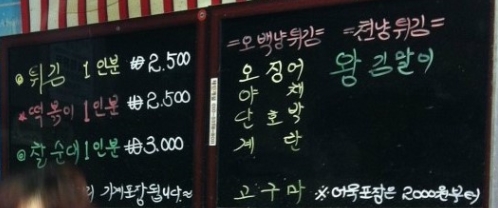 튀김 1인분 ₩2,500
떡볶이 1인분 ₩2,500
찰순대 1인분 ₩3,000
가게포장됩니다~
=오백냥튀김=
오징어
야채
단호박
계란
고구마
=천냥튀김=
왕김말이
※어묵포장은 2000원부터